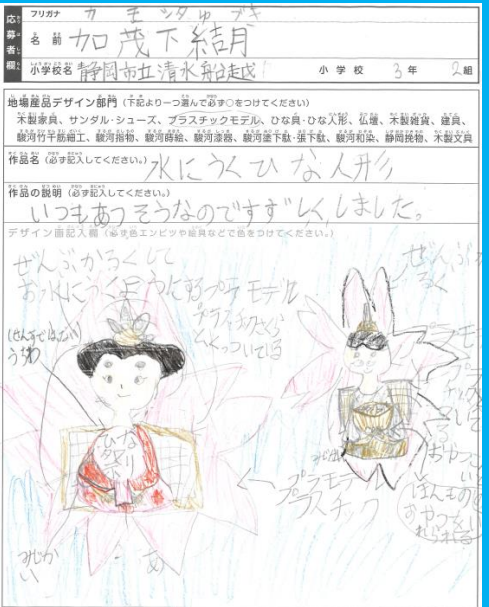 応募者欄
フリガナ カモシタゅヅキ
名前 加茂下結月
小学校名 静岡市立清水船越 小学校 3年 2組
地場産品デザイン部門(下記より一つ選んで必ず○をつけてください)
木製家具、サンダル・シューズ、プラスチックモデル、ひな具・ひな人形、仏壇、木製雑貨、建具、
駿河竹千筋細工、駿河指物、駿河蒔絵、駿河漆器、駿河塗下駄・張下駄、駿河和染、静岡挽物、木製文具
作品名(必ず記入してください。) 水にうくひな人形
作品の説明(必ず記入してください。)
いつもあつそうなのですずしくしました。
デザイン画記入欄(必ず色エンピツや絵具などで色をつけてください。)
ぜんぶかるくして
お水にうくようにするプラモデル
プラスチックさくら
(せんすではない)
うちわ
プラモデル
プラスチック
みじか
い
あ
ほんもの
おやつを
いれられる